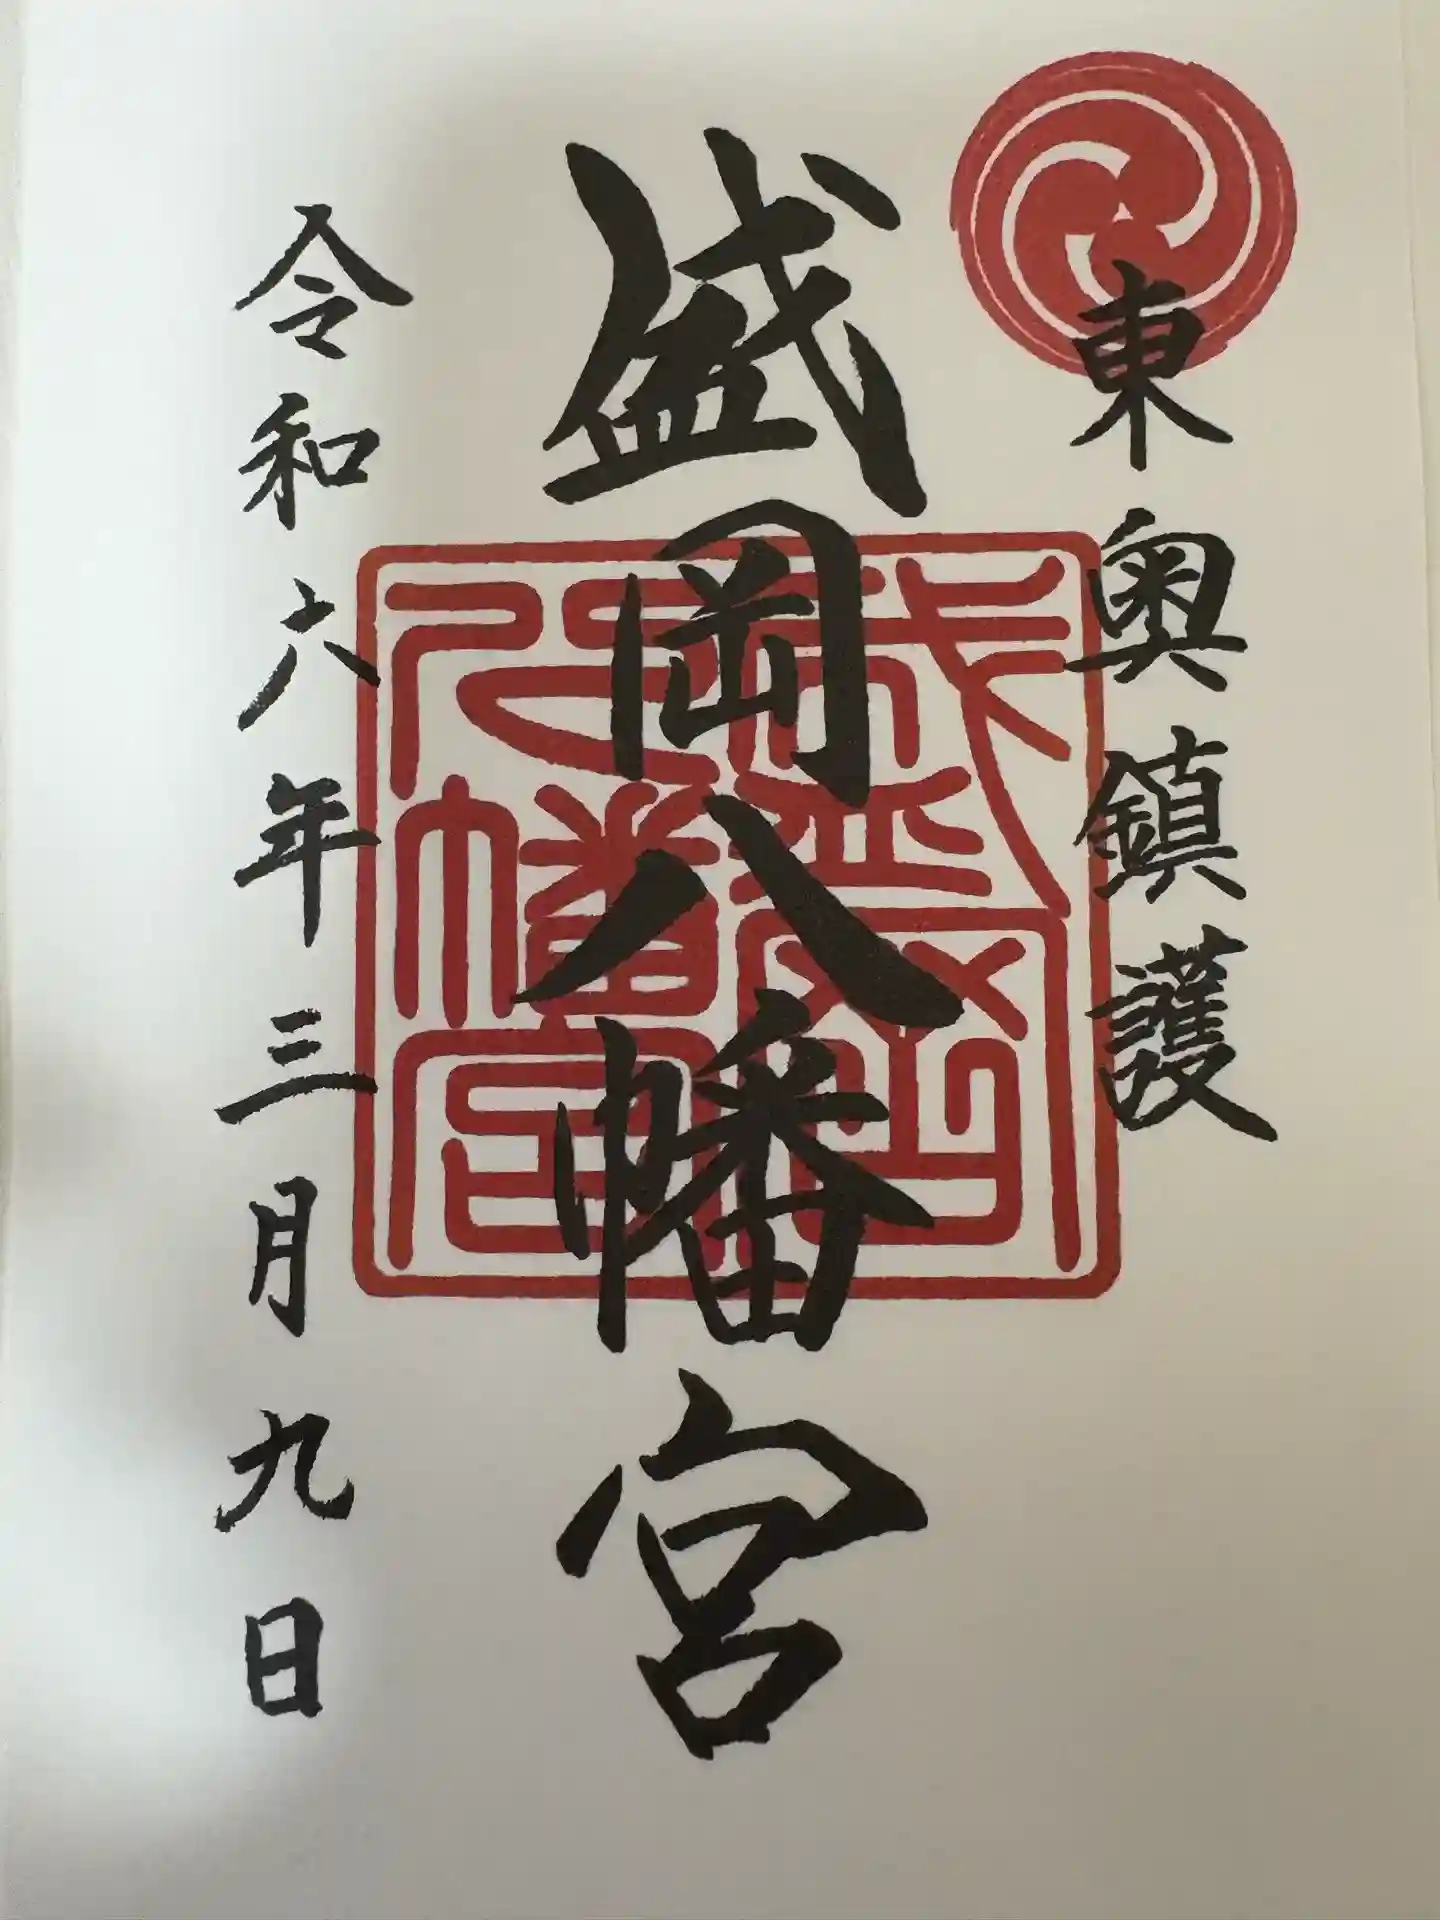 東奥鎮護
盛岡八幡宮
盛岡八幡宮
令和六年三月九日